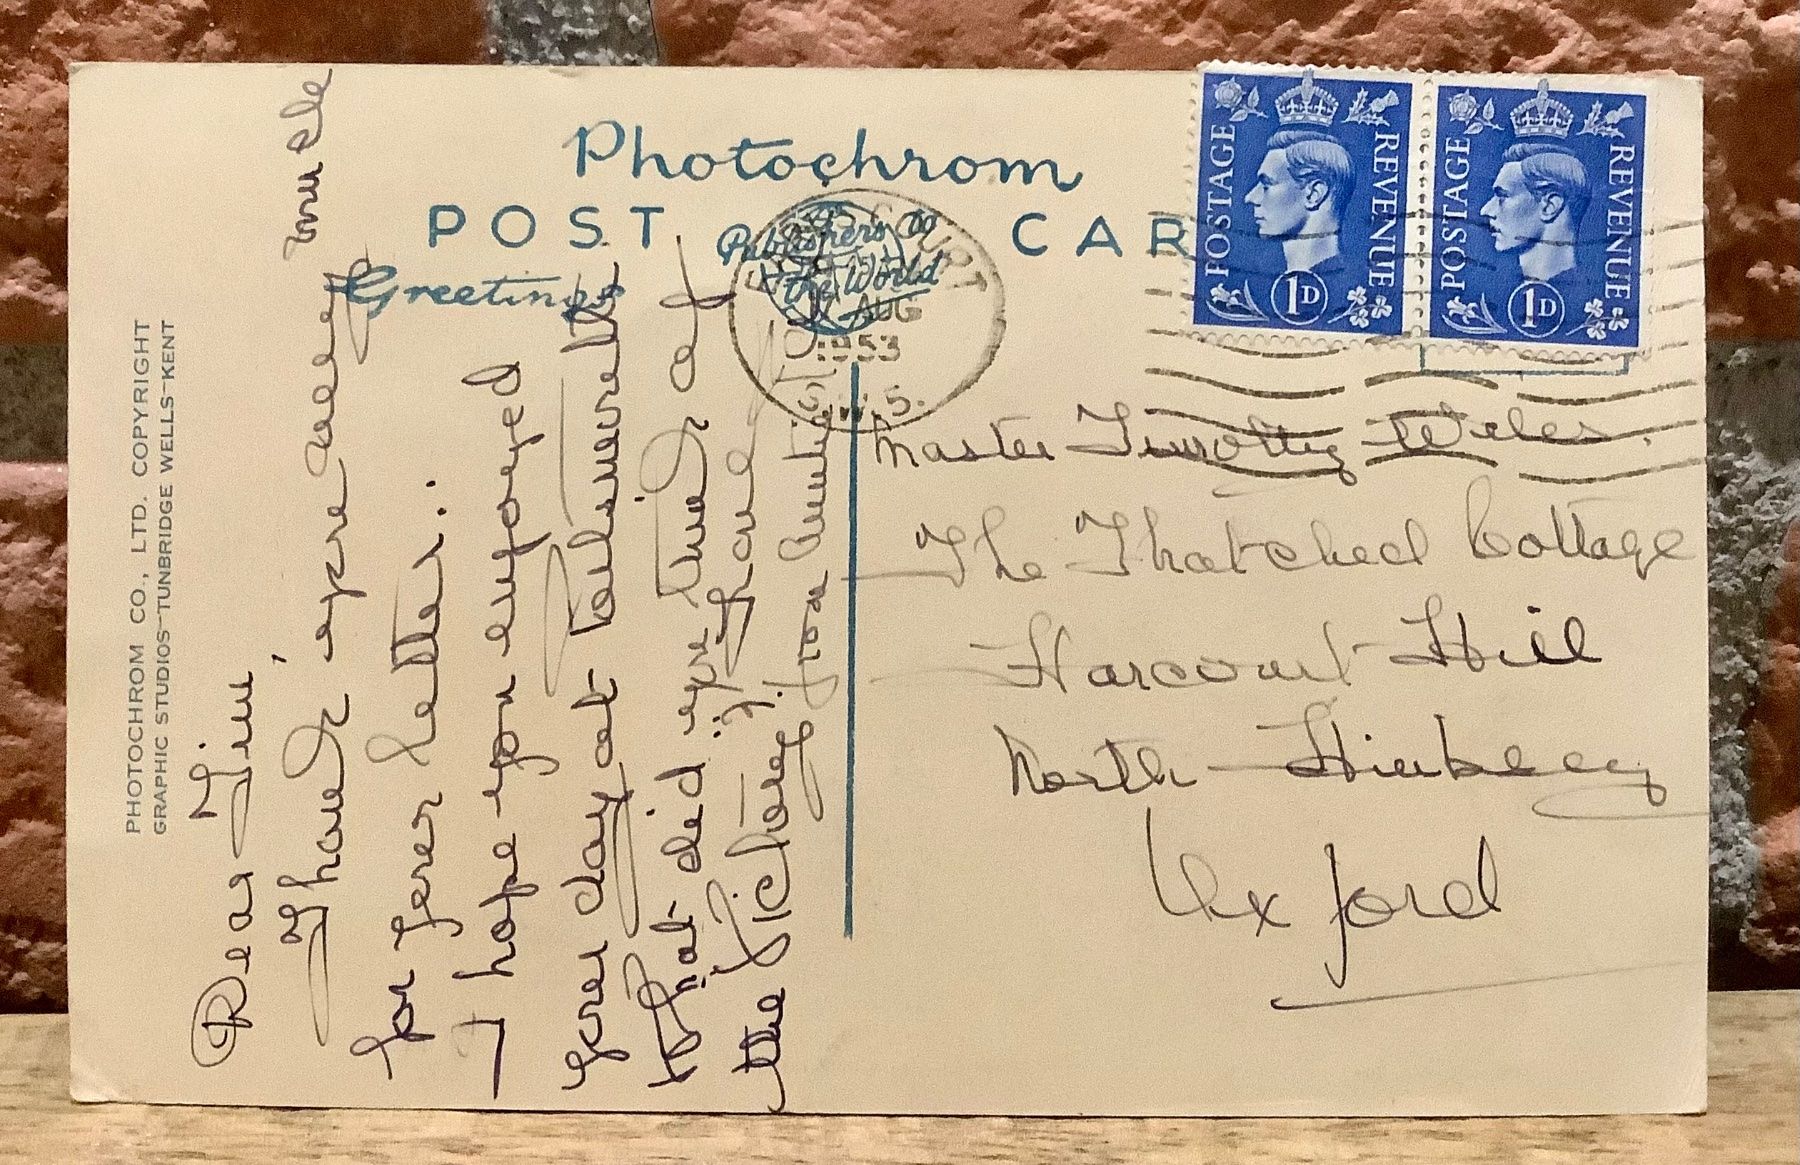 Photochrom
POST CAR
Greetings
Publishers to
the World
COURT
AUG
1953
S.W.5.
POSTAGE REVENUE
1D
POSTAGE REVENUE
1D
PHOTOCHROM CO., LTD. COPYRIGHT
GRAPHIC STUDIOS-TUNBRIDGE WELLS-KENT
Dear Tim,
Thank you very much
for your letter.
I hope you enjoyed
your day at
What did you think of
the Victory?
from Auntie
Master Timothy
The Thatched Cottage
Harcourt Hill
North Hinksey
Oxford